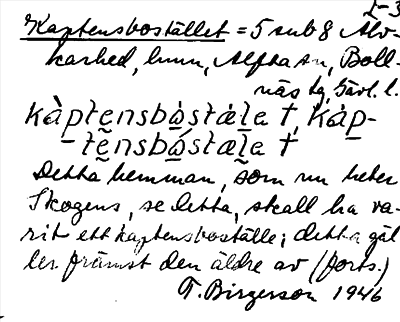 I-3
Kaptensbostället = 5 sub 8 Alv-
karhed, hmn, Alfta sn, Boll-
näs tg, Gävl. l.
kàptensbòstäla †, káp-
tẽnsbòstäla †
Detta hemman, som nu heter
Skogens, se detta, skall ha va-
rit ett kaptensboställe; detta gäl
ler främst den äldre av (forts.)
T. Birgerson 1946